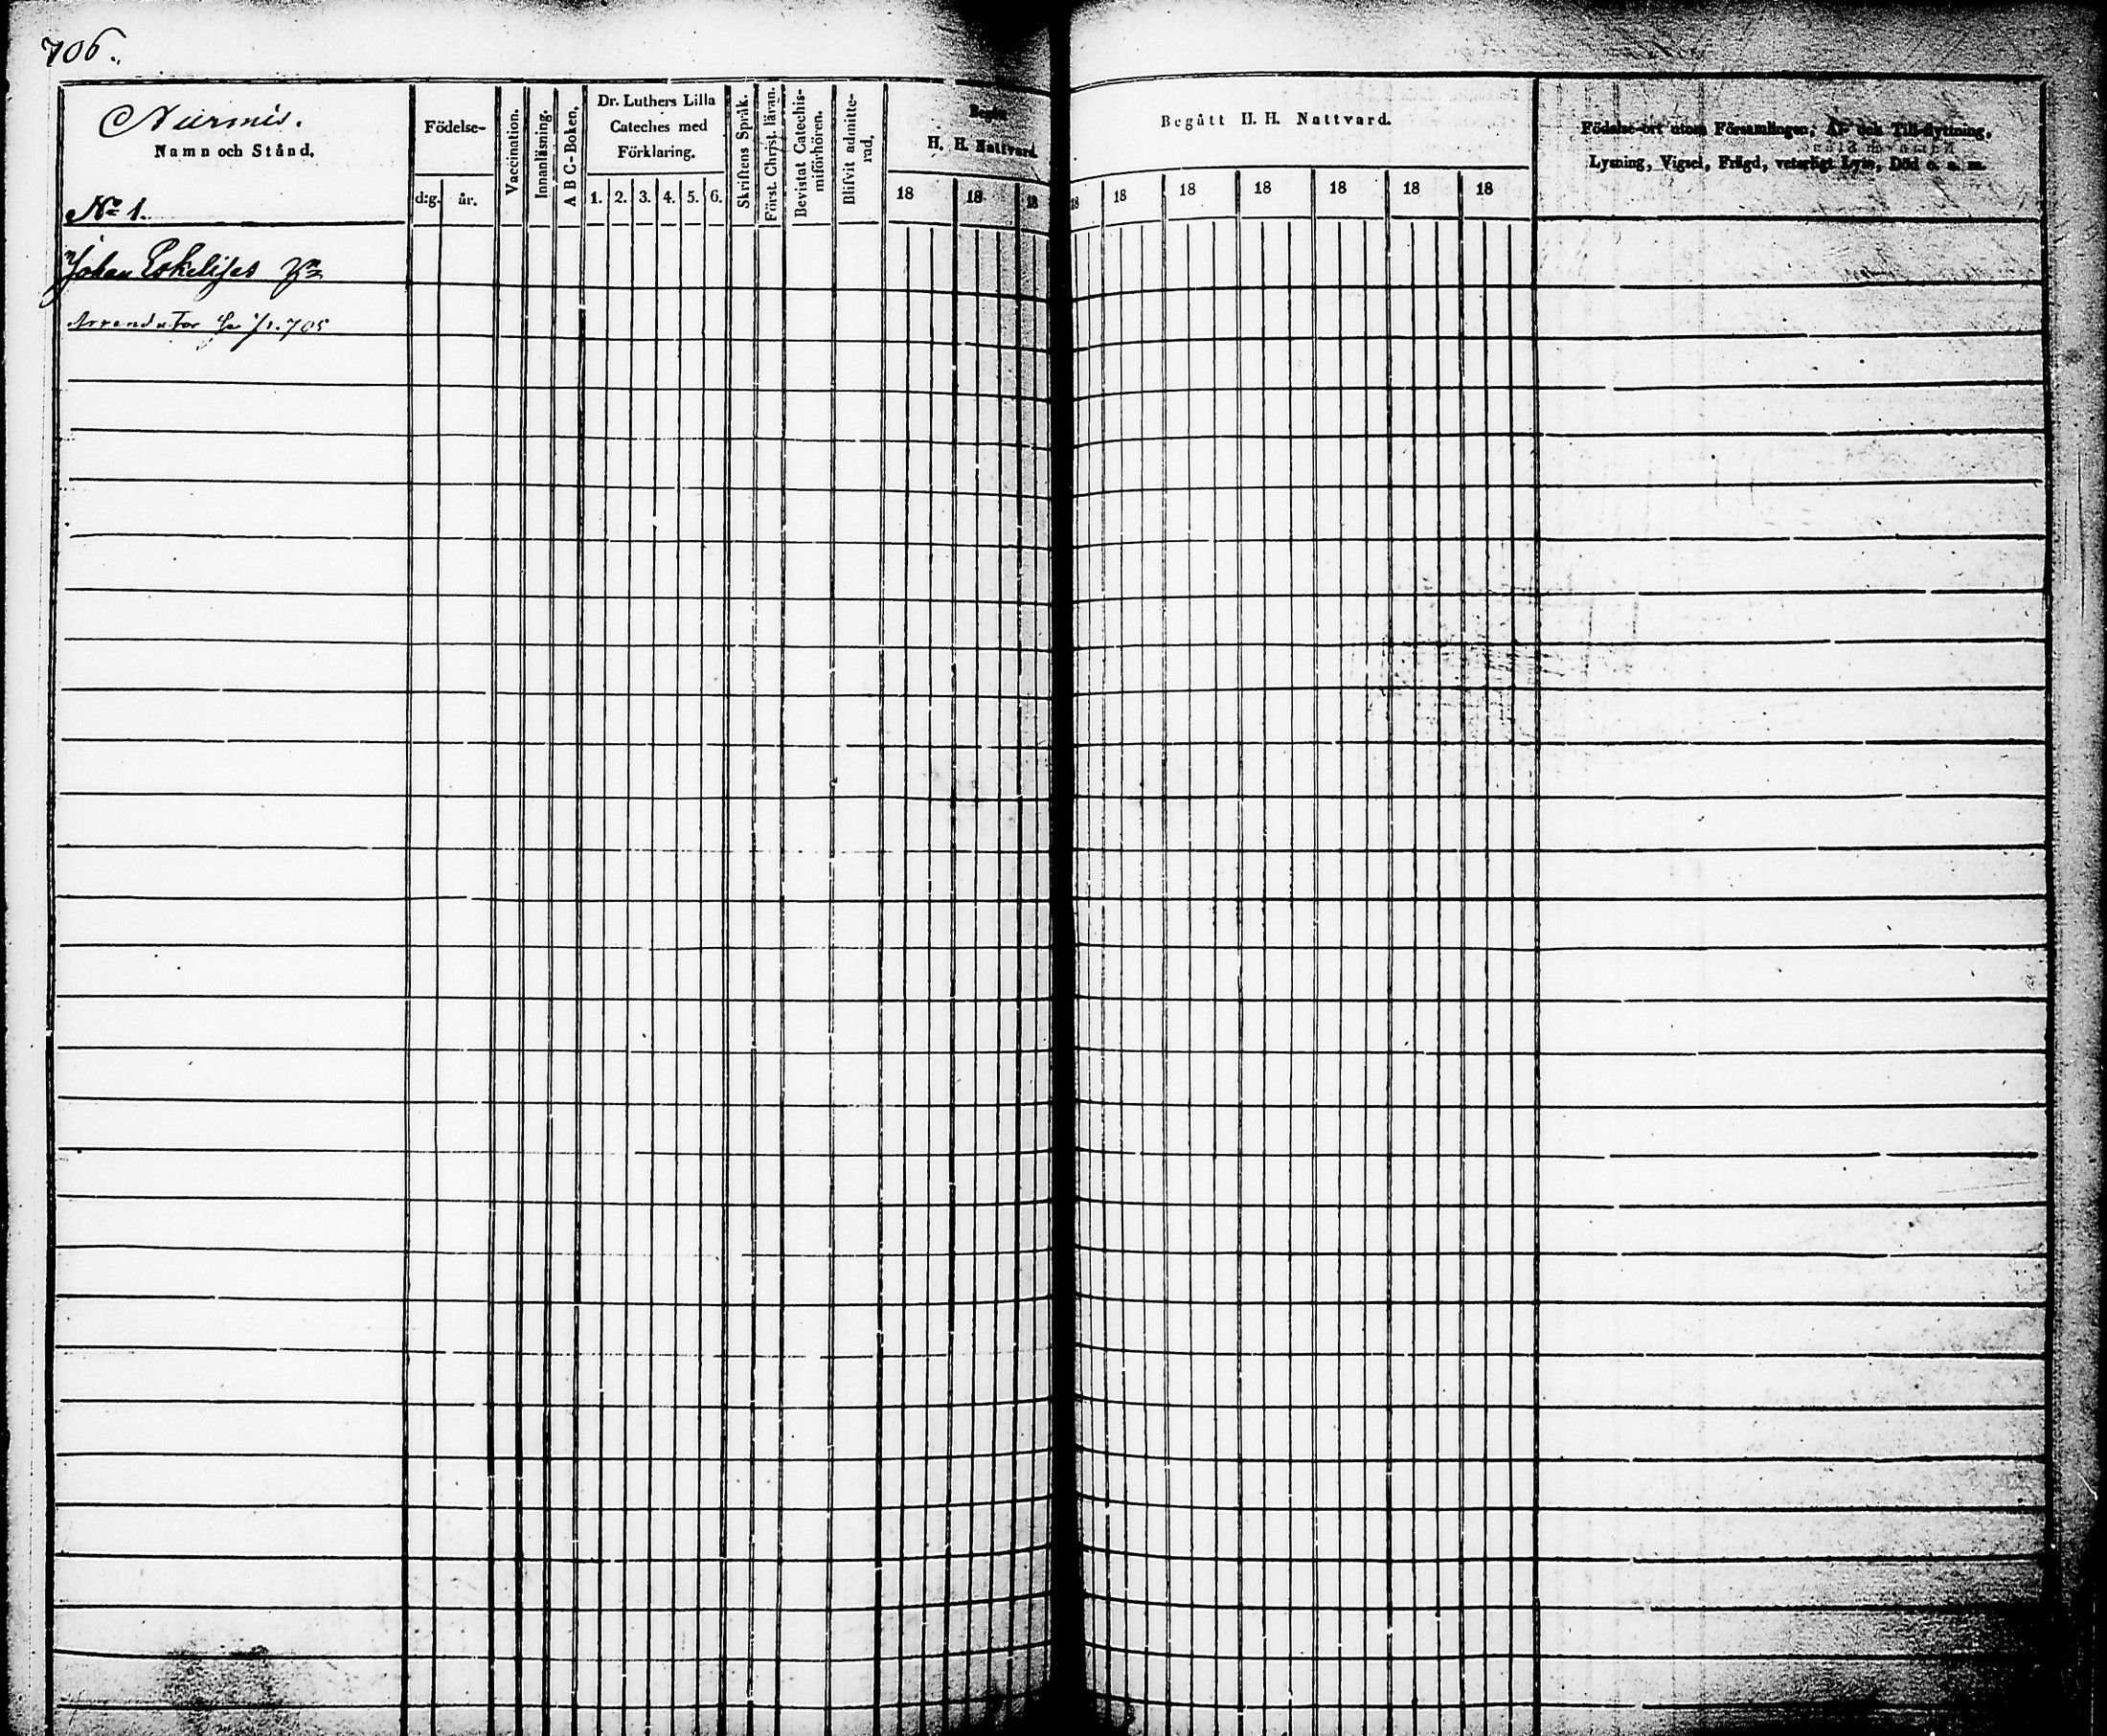 706.
Nurmis.
Namn och Stånd.
No 1.
Födelse-
d:g. år.
Vaccination.
Innanläsning.
A B C-Boken.
Dr. Luthers Lilla
Cateches med
Förklaring.
1. 2. 3. 4. 5. 6.
Skriftens Språk.
Först. Christ. läran.
Bevistat Catechis-
miförhören.
Blifvit admitte-
rad.
Begått
H. H. Nattvard.
18 18 18
Begått H. H. Nattvard.
18 18 18 18 18 18 18
Födelse-ort utom Församlingen, Af- och Till-flyttning,
Lysning, Vigsel, Frägd, veterligt Lyte, Död o. s. m.
Johan Eskelises
Arrendator 705